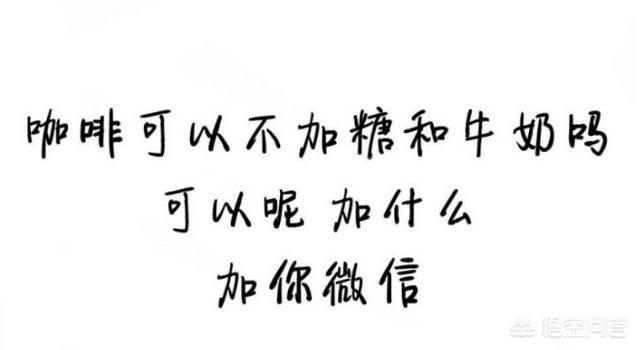 咖啡可以不加糖和牛奶吗
可以呢 加什么
加你微信
悟空问答